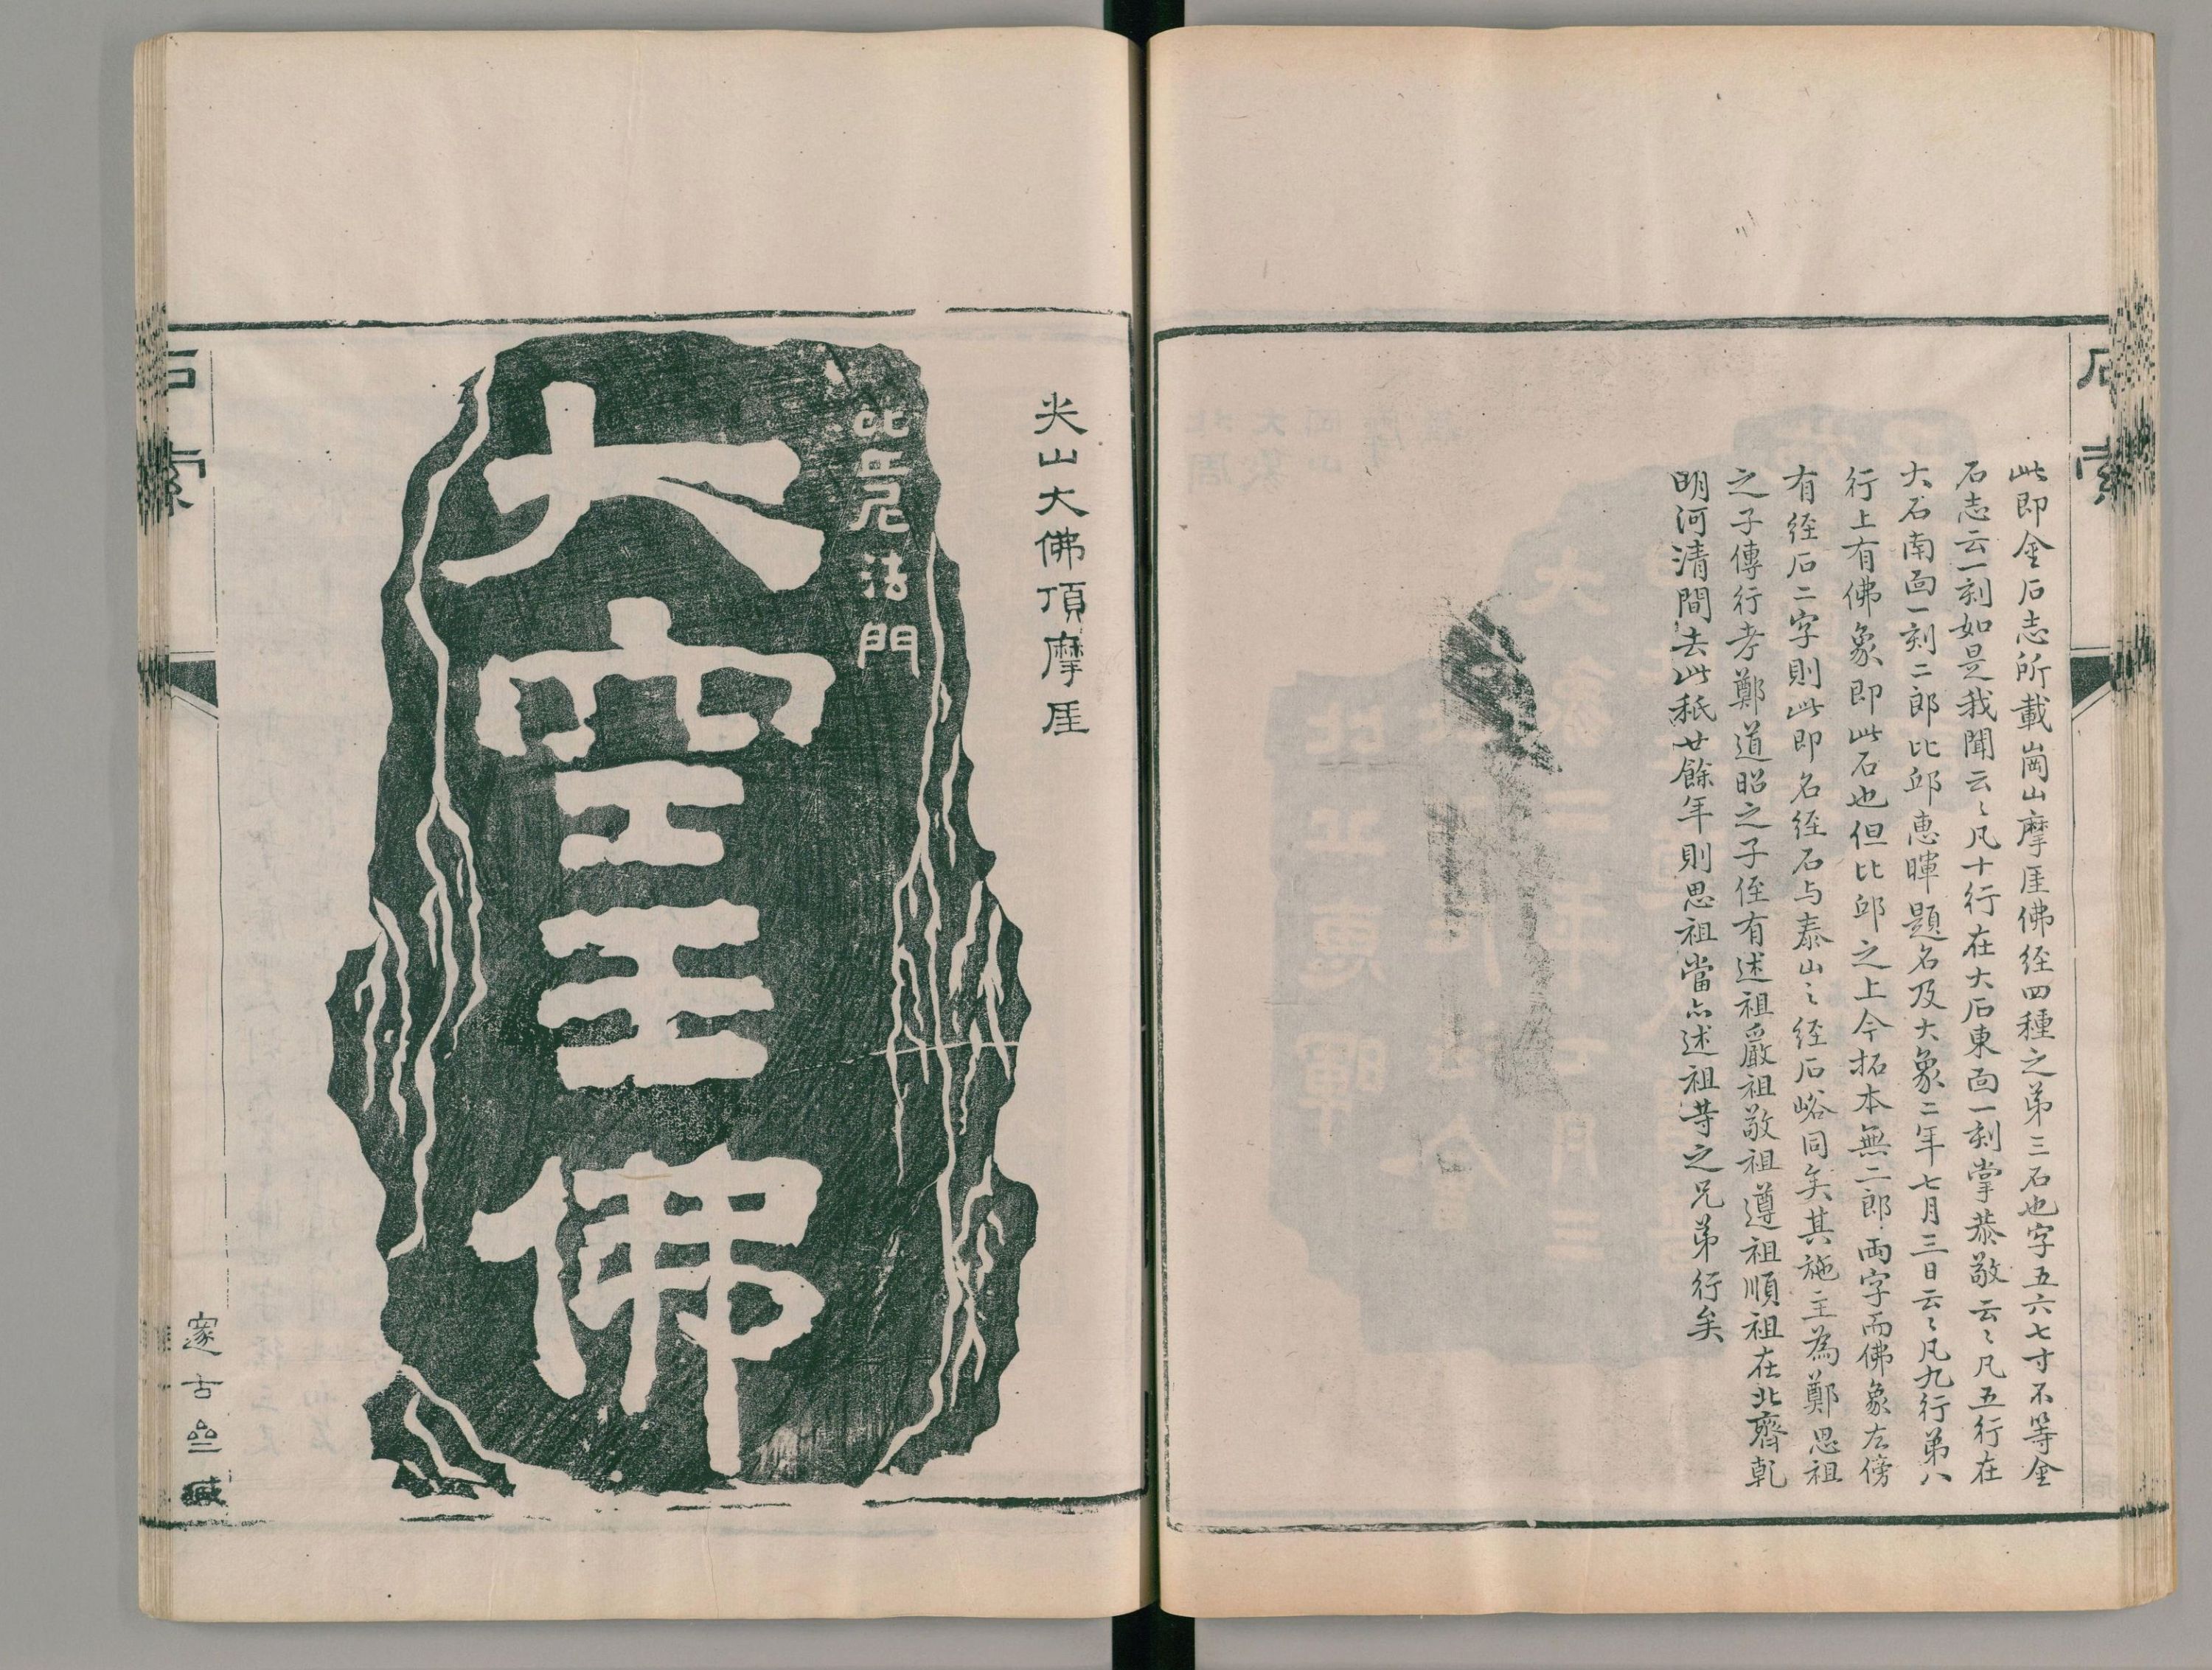 此即金石志所載崗山摩厓佛経四種之第三石也字五六七寸不等金
石志云一刻如是我聞云〻凡十行在大石東面一刻掌恭敬云〻凡五行在
大石南面一刻二郎比邱惠暉題名及大象二年七月三日云〻凡九行第八
行上有佛象即此石也但比邱之上今拓本無二郎両字而佛象左傍
有経石二字則此即名経石与泰山〻経石峪同矣其施主為鄭思祖
之子傳行孝鄭道昭之子侄有述祖嚴祖敬祖遵祖順祖在北齊乹
明河清間去此秖廿餘年則思祖當亦述祖等之兄弟行矣
尖山大佛頂摩厓
比丘尼法門
大空王佛
石索
邃古齋藏